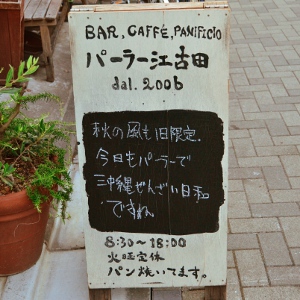 BAR, CAFFÉ, PANIFICIO
パーラー江古田
dal. 2006
秋の風も旧限定.
今日もパーラーで
沖縄ぜんざい日和
ですね
8:30~18:00
火曜定休
パン焼いてます。